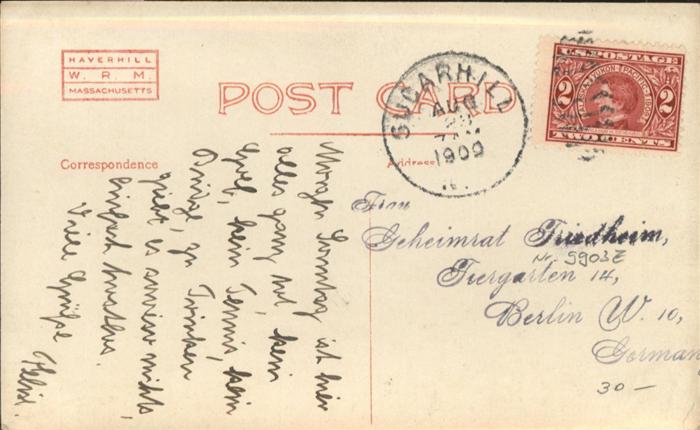 HAVERHILL
W. R. M.
MASSACHUSETTS
POST CARD
SUGAR HILL
AUG
1909
U.S. POSTAGE
ALASKA YUKON PACIFIC
2 2
TWO CENTS
Correspondence
Address
Morgen Sonntag ist hier
alles ganz tot, kein
Golf, kein Tennis, kein
zu Trinken
giebt es sowieso nichts
einfach trostlos.
Viele Grüße
Frau
Geheimrat Friedheim,
Nr. 5903Z
Tiergarten 14,
Berlin W. 10,
Germany
30 —